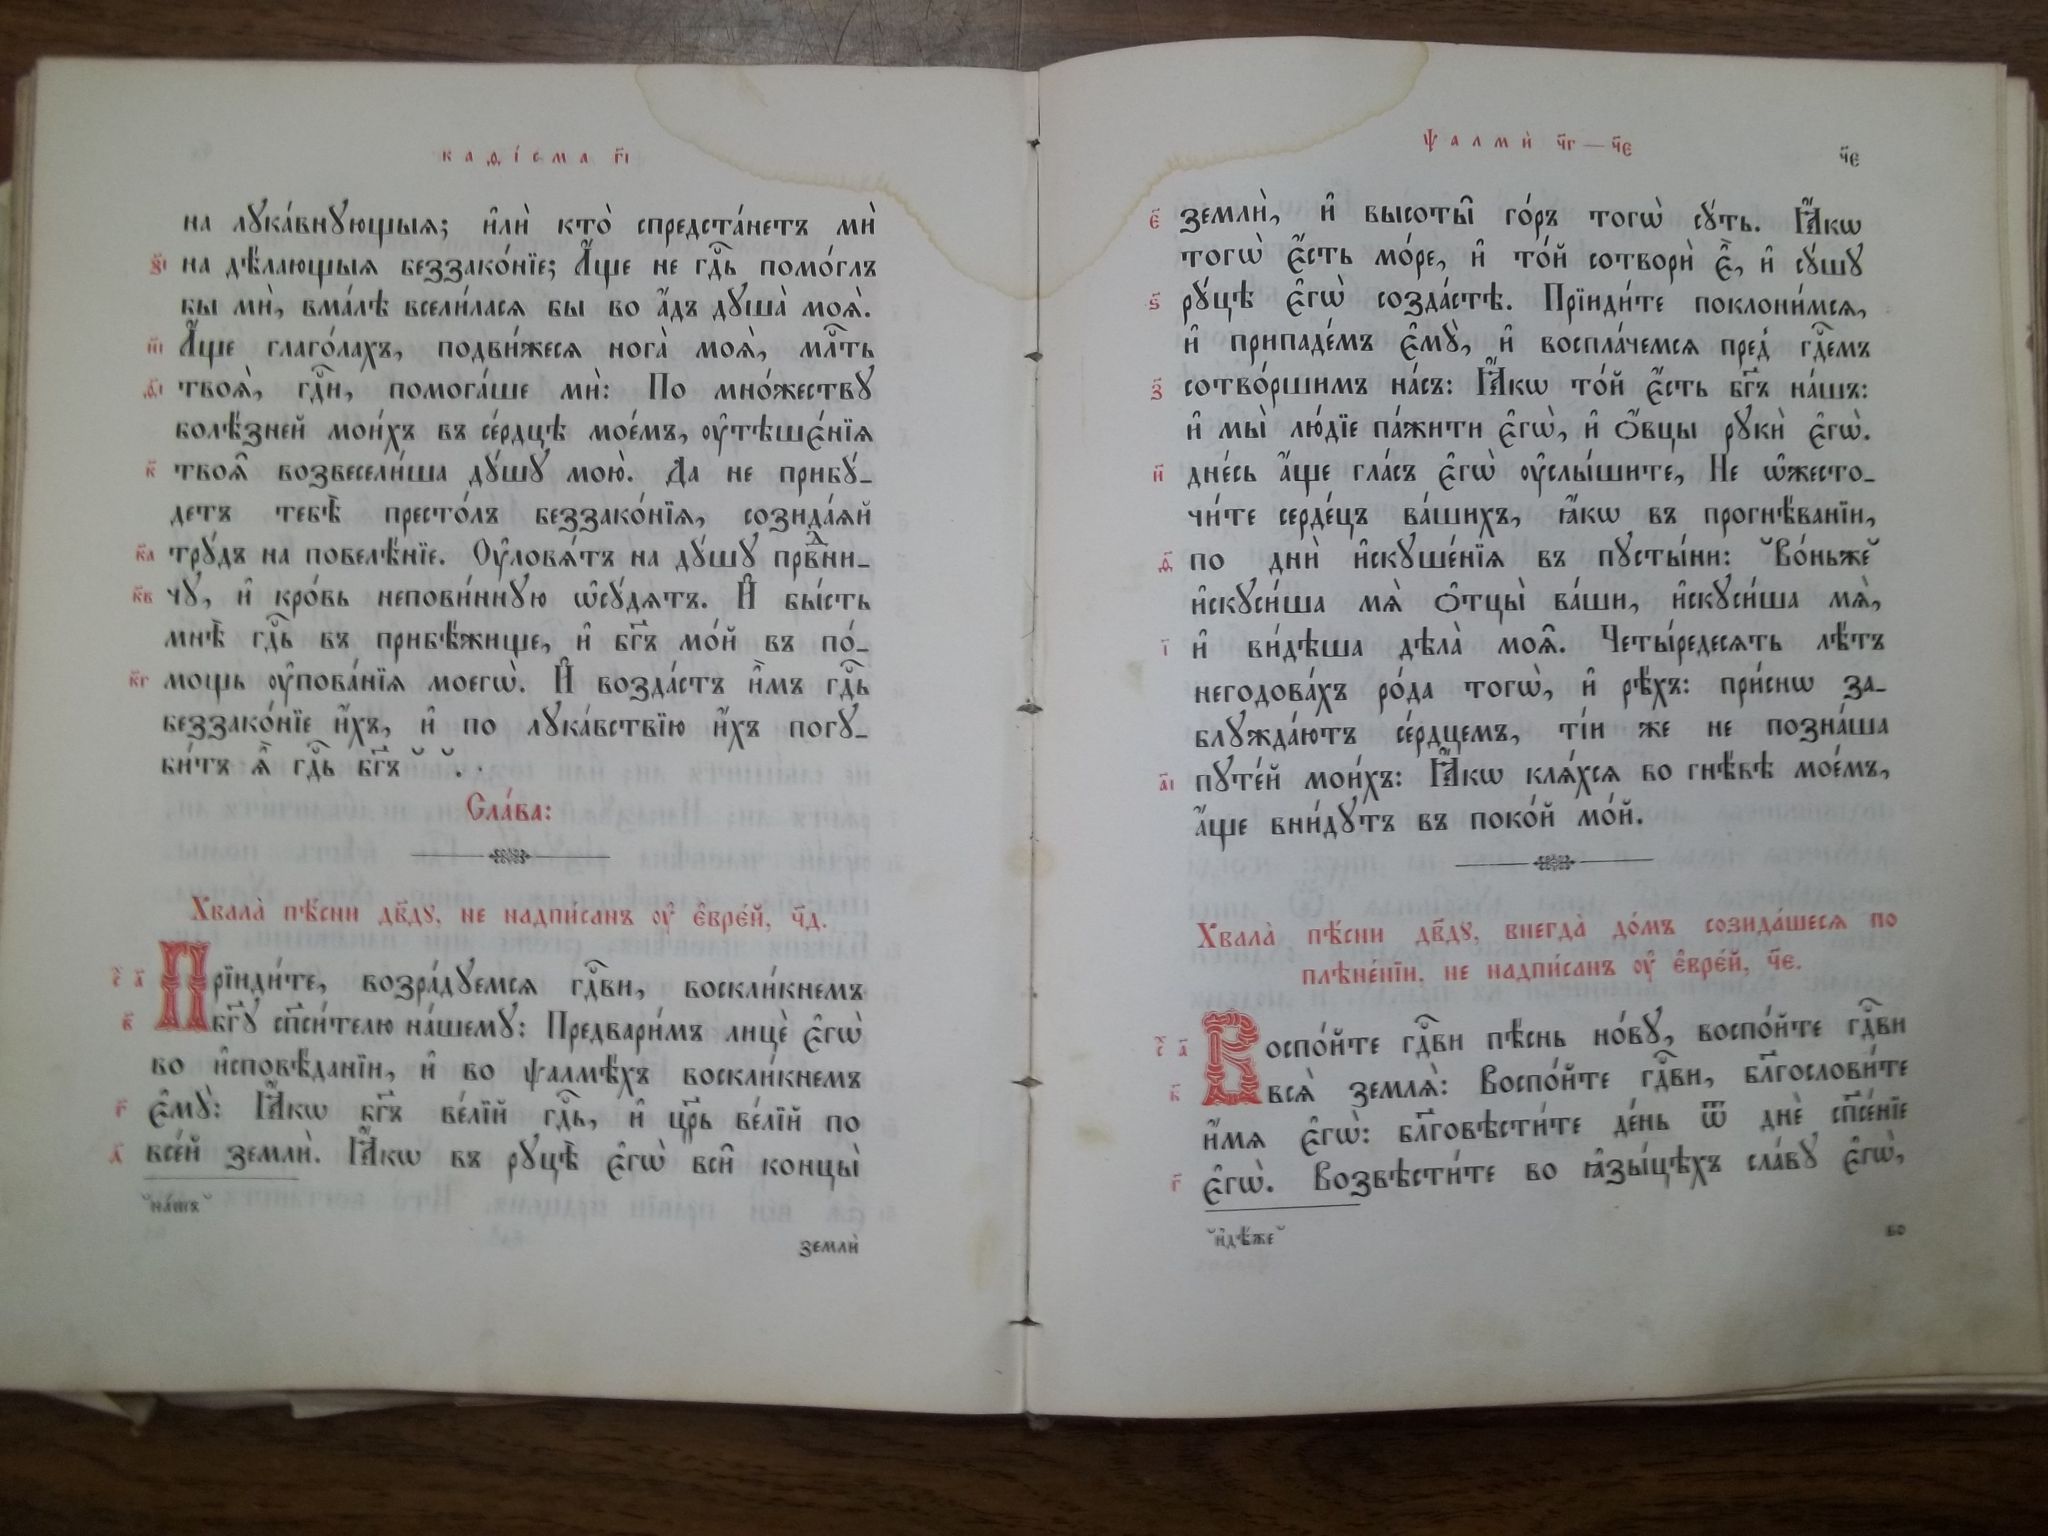 каѳі́сма г҃і
на лꙋка́внꙋющыѧ; и҆лѝ кто̀ спредста́нетъ мѝ
з҃і на дѣ́лающыѧ беззако́нїе; А҆́ще не гдⷭ҇ь помо́глъ
бы мѝ, вма́лѣ всели́ласѧ бы во а҆́дъ дꙋша̀ моѧ̀.
и҃і А҆́ще глаго́лахъ, подви́жесѧ нога̀ моѧ̀, млⷭ҇ть
ѳ҃і твоѧ̀, гдⷭ҇и, помога́ше мѝ: По мно́жествꙋ
болѣ́зней мои́хъ въ се́рдцѣ мое́мъ, ᲂу҆тѣшє́нїѧ
к҃ твоѧ̑ возвесели́ша дꙋ́шꙋ мою̀. Да не прибꙋ́-
детъ тебѣ̀ престо́лъ беззако́нїѧ, созида́ѧй
к҃а трꙋ́дъ на повелѣ́нїе. Оу҆ловѧ́тъ на дꙋ́шꙋ првⷣни-
к҃в чꙋ, и҆ кро́вь непови́ннꙋю ѡ҆сꙋ́дѧтъ. И҆ бы́сть
мнѣ̀ гдⷭ҇ь въ прибѣ́жище, и҆ бг҃ъ мо́й въ по́-
к҃г мощь ᲂу҆пова́нїѧ моегѡ̀. И҆ возда́стъ и҆̀мъ гдⷭ҇ь
беззако́нїе и҆́хъ, и҆ по лꙋка́вствїю и҆́хъ погꙋ-
би́тъ ѧ҆̀ гдⷭ҇ь бг҃ъ ̆ ̆ . .
Сла́ва:
Хвала̀ пѣ́сни дв҃дꙋ, не надпи́санъ ᲂу҆ є҆вре́й, ч҃д.
с҃ а҃ Прїиди́те, возра́дꙋемсѧ гдⷭ҇ви, воскли́кнемъ
в҃ бг҃ꙋ сп҃си́телю на́шемꙋ: Предвари́мъ лицѐ є҆гѡ̀
во и҆сповѣ́данїи, и҆ во ѱалмѣ́хъ воскли́кнемъ
г҃ є҆мꙋ̀: Ꙗ҆́кѡ бг҃ъ ве́лїй гдⷭ҇ь, и҆ цр҃ь ве́лїй по
д҃ все́й землѝ. Ꙗ҆́кѡ въ рꙋцѣ̀ є҆гѡ̀ всѝ концы̀
̆на́шъ̆
землѝ
ѱалмѝ ч҃г — ч҃є
ч҃є
є҃ землѝ, и҆ высоты̑ го́ръ тогѡ̀ сꙋ́ть. Ꙗ҆́кѡ
тогѡ̀ є҆́сть мо́ре, и҆ то́й сотворѝ є҆̀, и҆ сꙋ́шꙋ
ѕ҃ рꙋ́цѣ є҆гѡ̀ созда́стѣ. Прїиди́те поклони́мсѧ,
и҆ припаде́мъ є҆мꙋ̀, и҆ воспла́чемсѧ пред̾ гдⷭ҇емъ
з҃ сотво́ршимъ на́съ: Ꙗ҆́кѡ то́й є҆́сть бг҃ъ на́шъ:
и҆ мы̀ лю́дїе па́жити є҆гѡ̀, и҆ ѻ҆́вцы рꙋкѝ є҆гѡ̀.
и҃ дне́сь а҆́ще гла́съ є҆гѡ̀ ᲂу҆слы́шите, Не ѡ҆жесто-
чи́те серде́цъ ва́шихъ, ꙗ҆́кѡ въ прогнѣ́ванїи,
ѳ҃ по днѝ и҆скꙋше́нїѧ въ пꙋсты́ни: ̆Во́ньжӗ
и҆скꙋси́ша мѧ̀ ѻ҆тцы̀ ва́ши, и҆скꙋси́ша мѧ̀,
і҃ и҆ ви́дѣша дѣла̀ моѧ̑. Четы́редесѧть лѣ́тъ
негодова́хъ ро́да тогѡ̀, и҆ рѣ́хъ: при́снѡ за-
блꙋжда́ютъ се́рдцемъ, ті́и же не позна́ша
а҃і пꙋте́й мои́хъ: Ꙗ҆́кѡ клѧ́хсѧ во гнѣ́вѣ мое́мъ,
а҆́ще вни́дꙋтъ въ поко́й мо́й.
Хвала̀ пѣ́сни дв҃дꙋ, внегда̀ до́мъ созида́шесѧ по
плѣне́нїи, не надпи́санъ ᲂу҆ є҆вре́й, ч҃є.
с҃ а҃ Воспо́йте гдⷭ҇ви пѣ́снь но́вꙋ, воспо́йте гдⷭ҇ви
в҃ всѧ̀ землѧ̀: Воспо́йте гдⷭ҇ви, бл҃гослови́те
и҆́мѧ є҆гѡ̀: бл҃говѣсти́те де́нь ѿ днѐ сп҃се́нїе
г҃ є҆гѡ̀. Возвѣсти́те во ꙗ҆зы́цѣхъ сла́вꙋ є҆гѡ̀,
̆и҆дѣ́жӗ
во